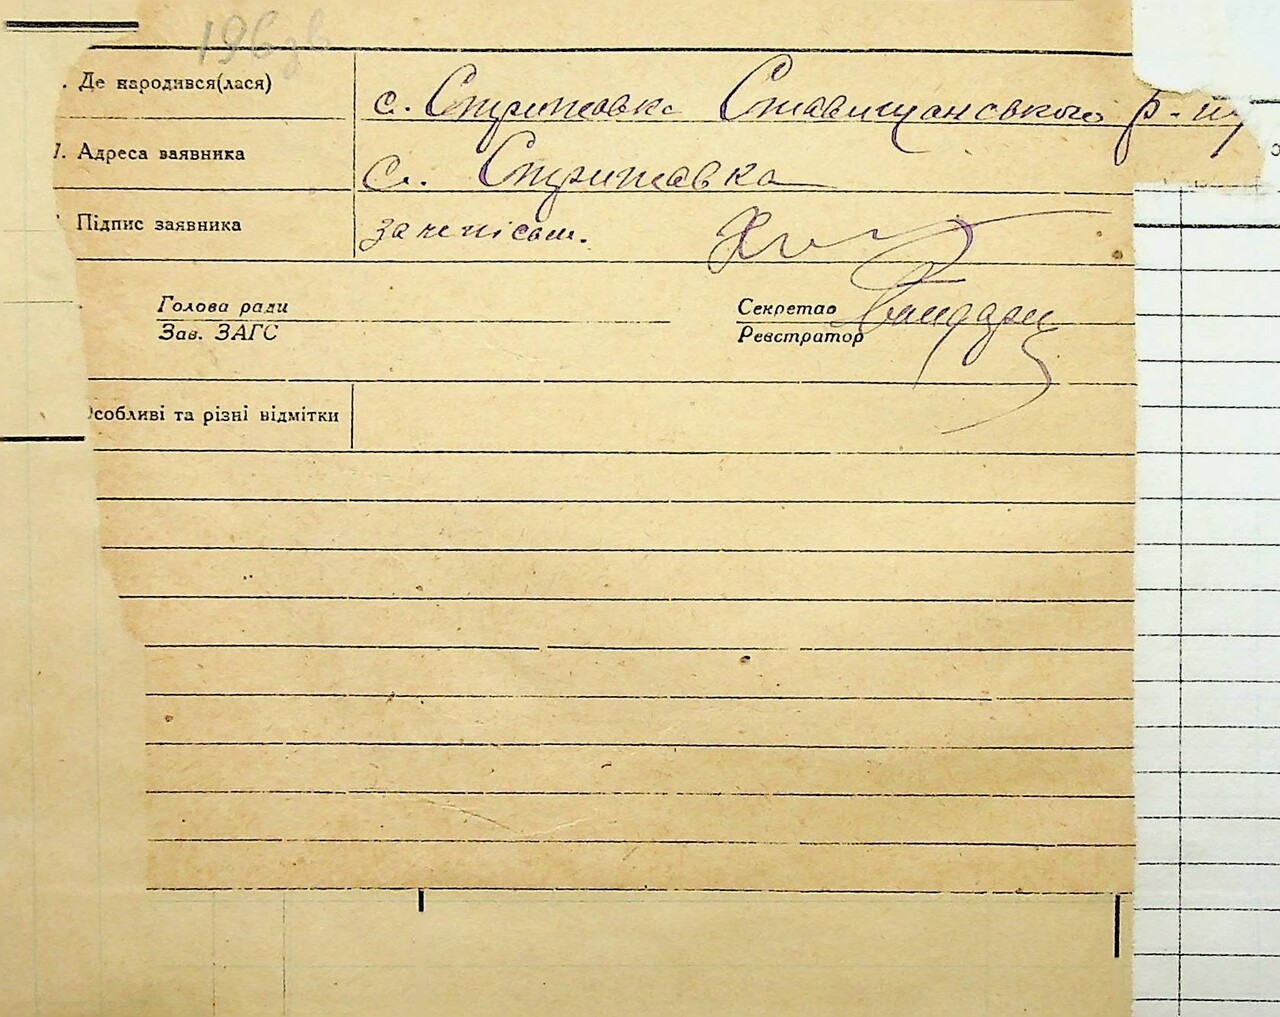 196зв
. Де народився(лася) с. Стрижавка Ставищанського р-ну
1. Адреса заявника с. Стрижавка
Підпис заявника
Голова ради Секретар
Зав. ЗАГС Реєстратор
Особливі та різні відмітки